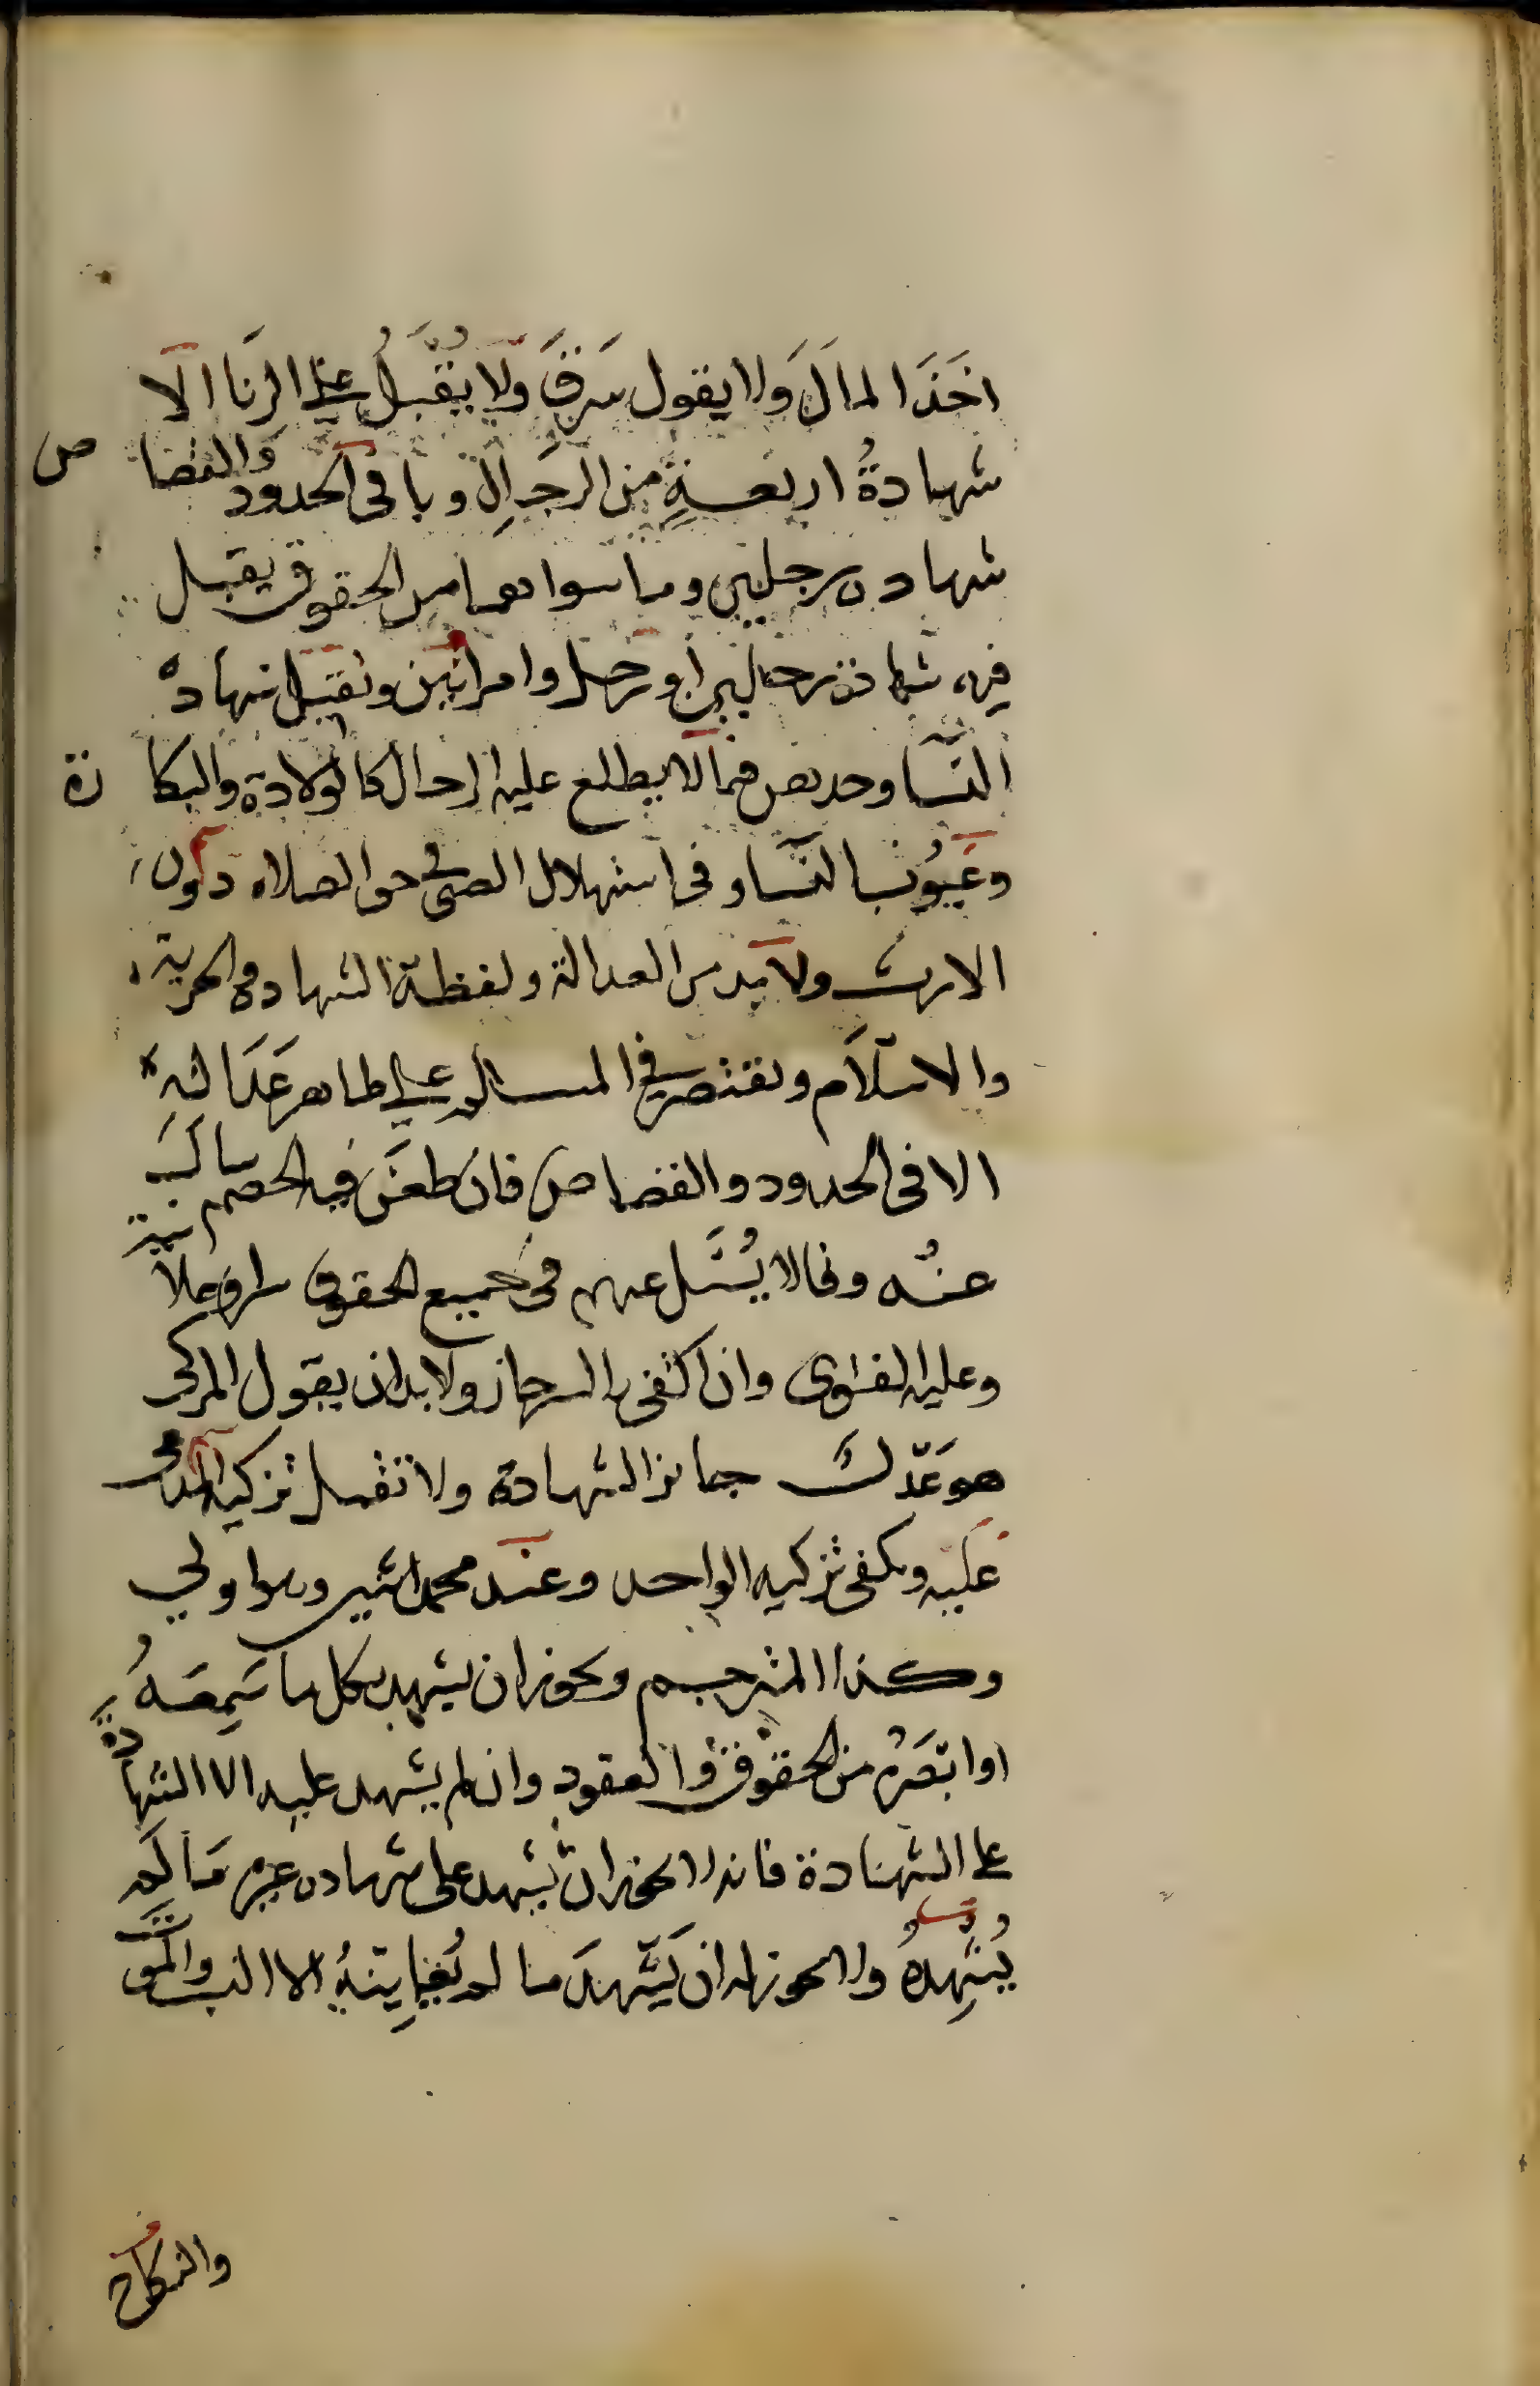 اخَذَ المالَ وَلا يقول سَرقَ وَلا يُقبَلُ على الزنا الا
شهادةُ اربعةٍ من الرجالِ وباقى الحدود والقصاص
شهادة رجلين وما سواهما من الحقوق يقبل
فيه شهادة رجلين او رجل وامراتين وتقبل شهادة
النسا وحدهن فيما لا يطلع عليه الرجال كالولادة والبكارة
وعيوُب النسَا وفى استهلال الصبى فى حق الصلاه دون
الارث ولا بد من العدالة ولفظة الشهادة والحرية
والاسلام ويقتصر في المسلم على ظاهر عَدَالته
الا فى الحدود والقصاص فان طعَن فيه الخصم سال
عنه وقالا يُسَل عنهم فى جميع الحقوق سرا وعلا نية
وعليه الفتوى وان اكتفى بالسر جاز ولا بد ان يقول المزكى
هو عَدل جايز الشهادة ولا تقبل تزكية المدعى
عليه ويكفى تزكيه الواحد وعند محمد اثنين وهو اولي
وكذا المترجم ويجوز ان يشهد بكل ما سَمِعَهُ
او ابصَره من الحقوق والعقود وان لم يشهد عليه الا الشهادة
على الشهادة فانه لا يجوز ان يشهد على شهادة غيره مَا لَم
يُشهِدهُ ولا يجوز له ان يَشهدَ ما لم يُعَاينهُ الا النسب والموت
والنكاح